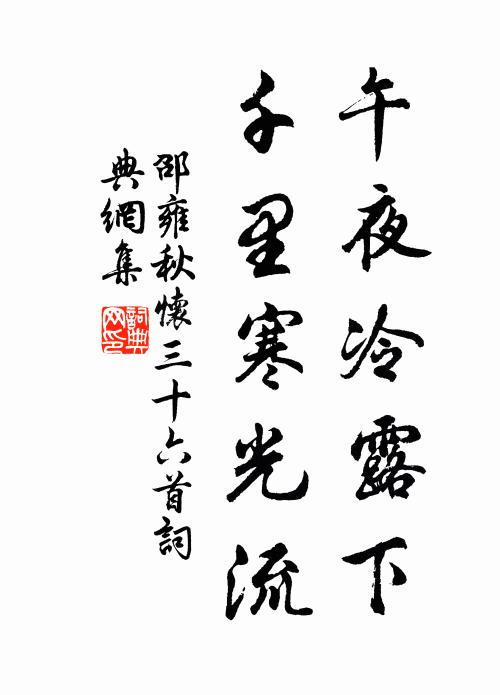 午夜冷露下
千里寒光流
邵雍秋懷三十六首詞
典網集
詞典
网印